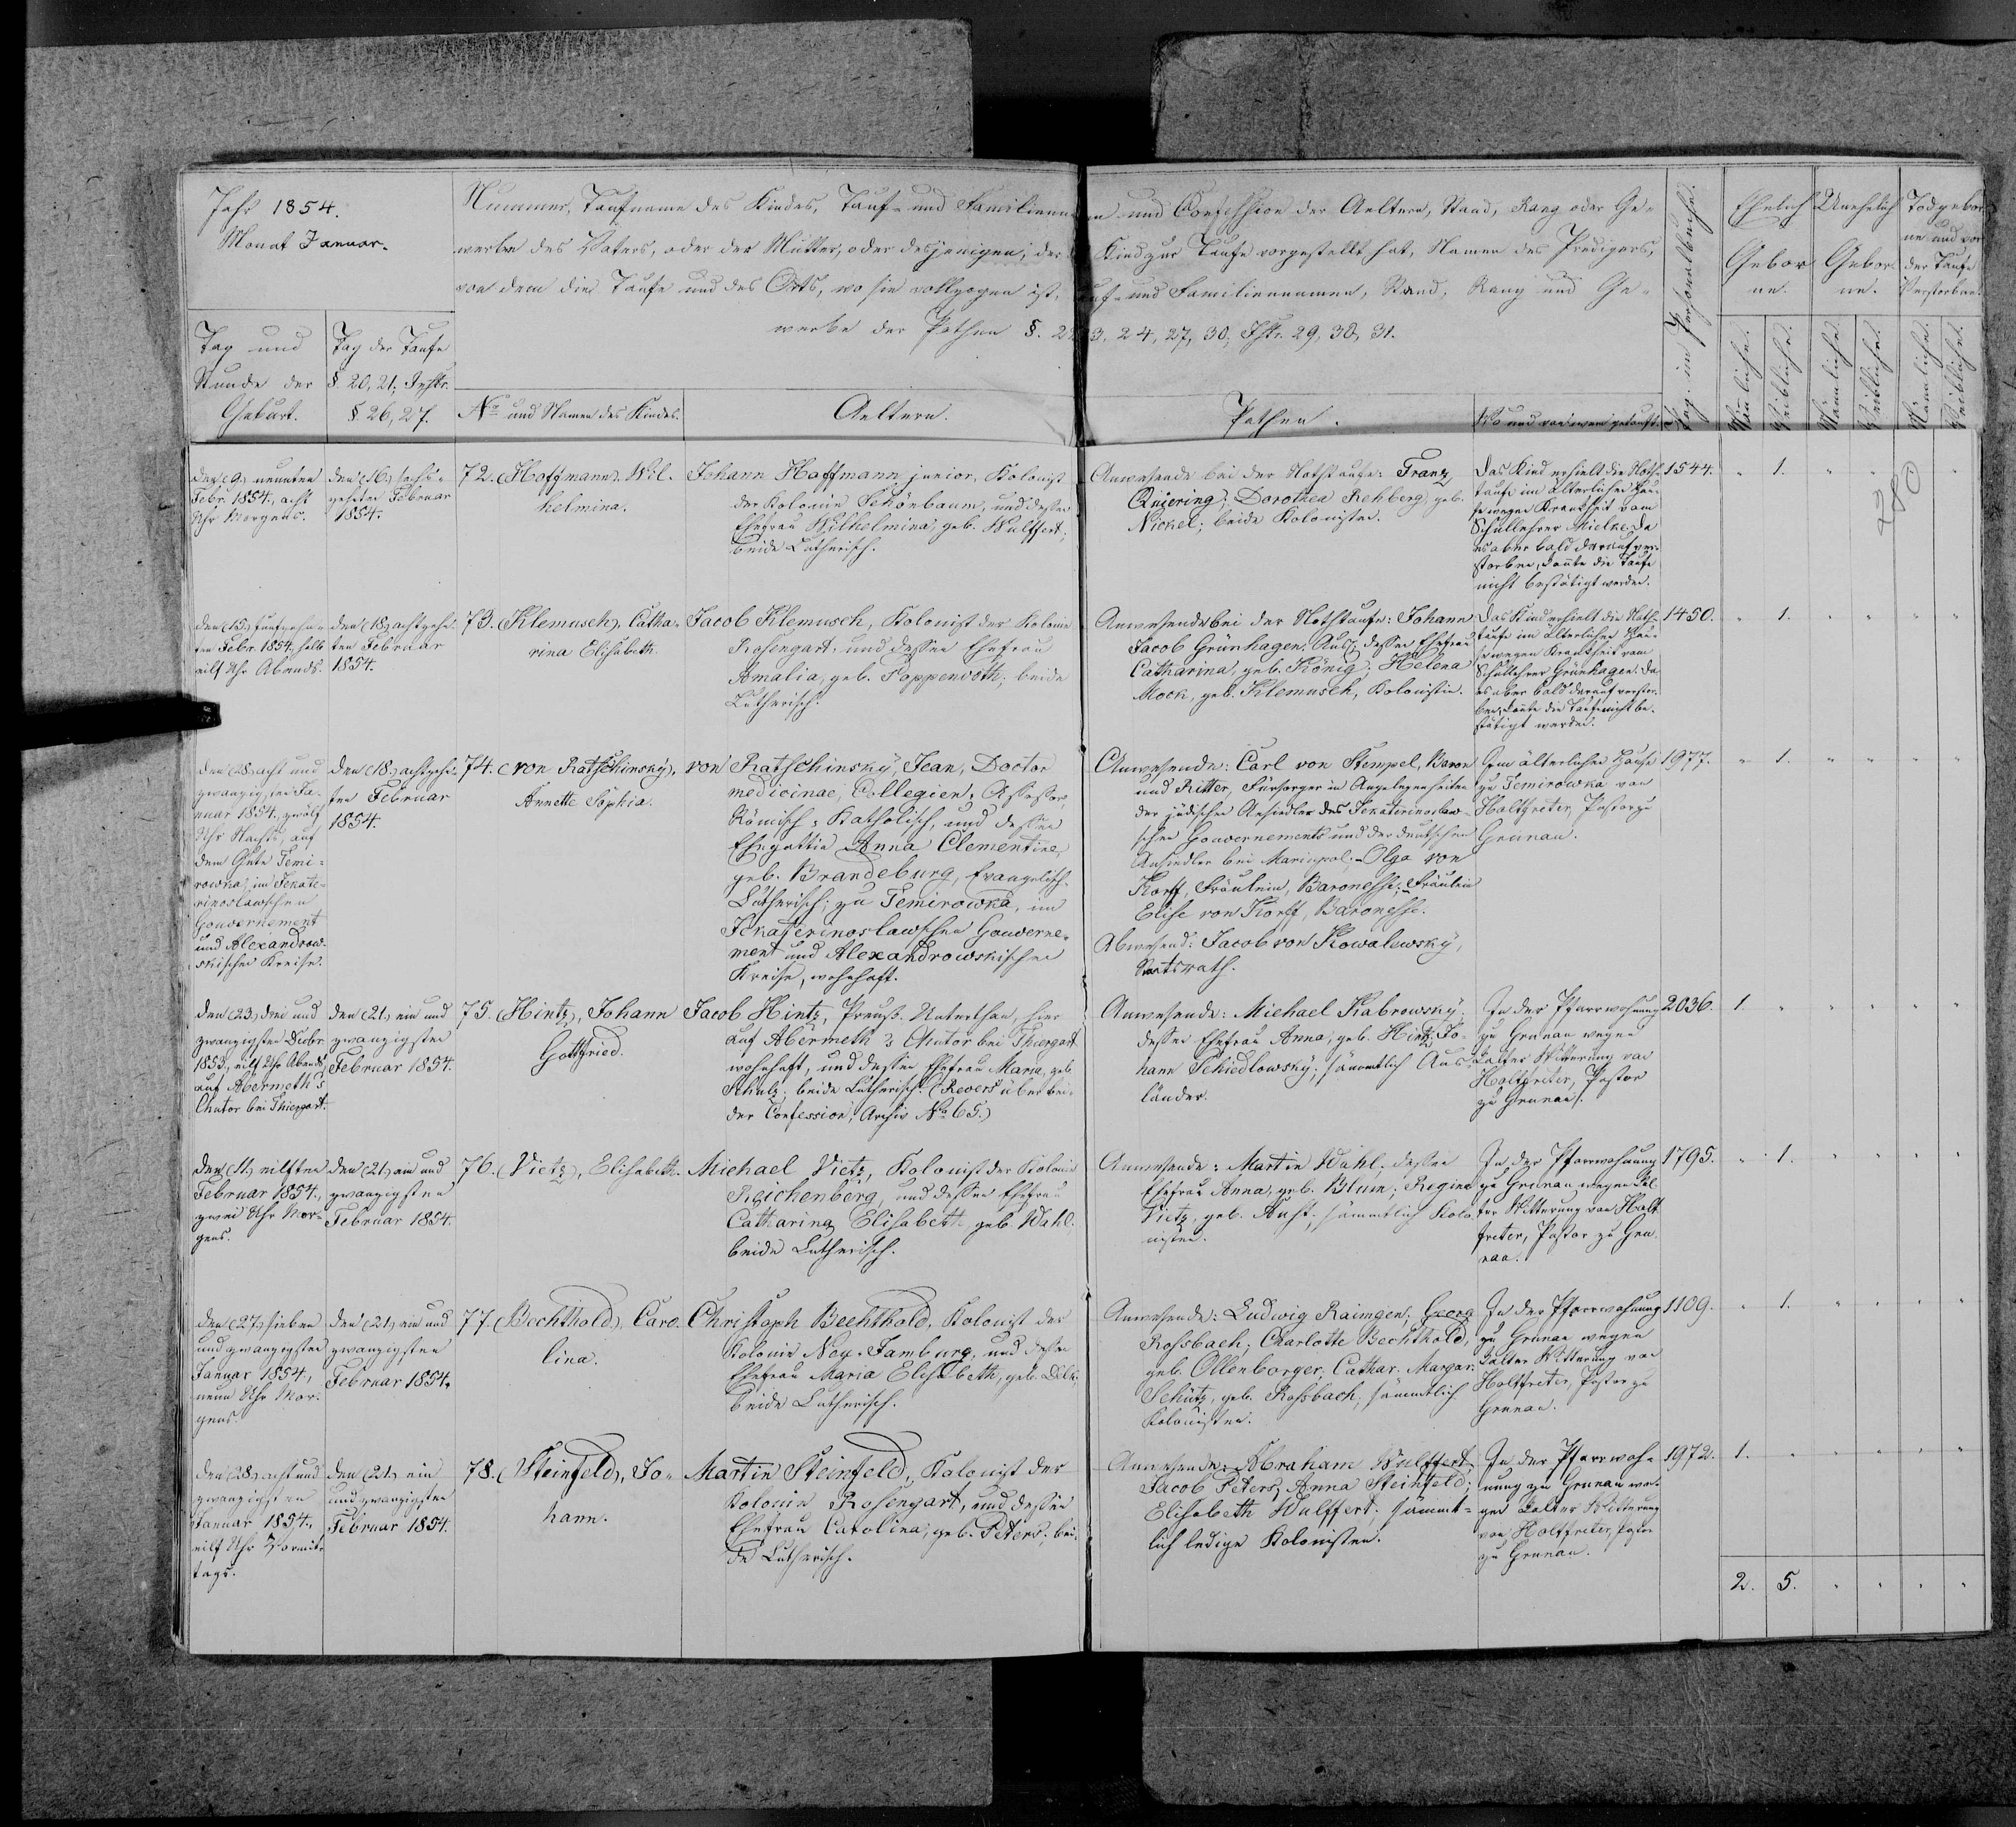 Jahr 1854.
Monat Januar.
Tag und
Stunde der
Geburt.
Tag der Taufe
§. 20, 21, Instr.
§ 26, 27.
Nummer, Taufname des Kindes, Tauf- und Familienna
werbe des Vaters, oder der Mutter, oder desjenigen, der
von dem die Taufe und des Orts, wo sie vollzogen ist,
werbe der Pathen §. 22
No und Namen des Kindes.
Aeltern.
en und Confession der Aeltern, Stand, Rang oder Ge-
Kind zur Taufe vorgestellt hat, Namen des Predigers,
auf- und Familiennamen, Stand, Rang und Ge-
3, 24, 27, 30; Istr. 29, 30, 31.
Pathen.
Wo und von wem getauft.
Pag. im Personalbuche.
Ehelich
Gebor
ne.
Unehelich
Gebor
ne.
Todgebor
ne und vor
der Taufe
Verstorben.
Mänliche.
Weibliche.
Männliche.
Weibliche.
Männliche.
Weibliche.
den (9.) neunten
Febr. 1854., acht
Uhr Morgens.
den (16.) sech-
zehnten Februar
1854.
72. (Hoffmann), Wil-
helmina.
Johann Hoffmann junior, Kolonist
der Kolonie Schönbaum, und dessen
Ehefrau Wilhelmina, geb. Wulffert;
beide Lutherisch.
Anwesende bei der Nothtaufe: Franz
Quiering; Dorothea Rehberg, geb.
Nickel; beide Kolonisten.
Das Kind erhielt die Noth-
taufe im älterlichen Hau-
se wegen Krankheit vom
Schullehrer Mielke. Da
es aber bald darauf ver-
storben, konte die Taufe
nicht bestätigt werden.
1544. " 1. " " "
280
den (15.) funfzehn-
ten Febr. 1854., halb
eilf Uhr Abends.
den (18.) achtzehn-
ten Februar
1854.
73. (Klemusch), Catha-
rina Elisabeth.
Jacob Klemusch, Kolonist der Kolonie
Rosengart, und dessen Ehefrau
Amalia, geb. Poppenroth; beide
Lutherisch.
Anwesende bei der Nothtaufe: Johann
Jacob Grünhagen, dessen Ehefrau
Catharina, geb. König; Helena
Mock, geb. Klemusch, Kolonistin.
Das Kind erhielt die Noth-
taufe im älterlichen Hau-
se wegen Krankheit vom
Schullehrer Grünhagen. Da
es aber bald darauf verstor-
ben, konte die Taufe nicht be-
stätigt werden.
1450. " 1. " " " "
den (28.) acht und
zwanzigsten Ja-
nuar 1854., zwölf
Uhr Nachts, auf
dem Gute Temi-
rowka, im Jekate-
rinoslawschen
Gouvernement
und Alexandrow-
skischen Kreise.
den (18.) achtzehn-
ten Februar
1854.
74. (von Ratschinsky),
Annette Sophia.
von Ratschinsky, Jean, Doctor
medicinae, Collegien-Assessor,
Römisch-Katholisch, und dessen
Ehegattin Anna Clementine,
geb. Brandeburg, Evangelisch-
Lutherisch; zu Temirowka, im
Jekaterinoslawschen Gouverne-
ment und Alexandrowskischen
Kreise, wohnhaft.
Anwesende: Carl von Stempel, Baron
und Ritter, Fürsorger in Angelegenheiten
der jüdischen Ansiedler des Jekaterinoslaw-
schen Gouvernements und der deutschen
Ansiedler bei Mariupol; Olga von
Korff, Fräulein, Baronesse; Fräulein
Elise von Korff, Baronesse.
Abwesend: Jacob von Kowalewsky,
Staatsrath.
Im älterlichen Hause
zu Temirowka von
Holtfreter, Pastor zu
Grunau.
1977. " 1. " " " "
den (23.) drei und
zwanzigsten Decbr.
1853., eilf Uhr Abends,
auf Abermeth's
Chutor bei Thiergart.
den (21.) ein und
zwanzigsten
Februar 1854.
75. (Hintz), Johann
Gottfried.
Jacob Hintz, Preuß. Unterthan, hier
auf Abermeth's Chutor bei Thiergart
wohnhaft, und dessen Ehefrau Maria, geb.
Schulz; beide Lutherisch. (Revers über bei-
der Confession, Archiv No 65.)
Anwesende: Michael Kabrowsky;
dessen Ehefrau Anna, geb. Hintz; Jo-
hann Schiedlowsky; sämmtlich Aus-
länder.
In der Pfarrwohnung
zu Grunau wegen
kalter Witterung von
Holtfreter, Pastor
zu Grunau.
2036. 1. " " " " "
den (11.) eilften
Februar 1854.,
zwei Uhr Mor-
gens.
den (21.) ein und
zwanzigsten
Februar 1854.
76. (Vietz), Elisabeth.
Michael Vietz, Kolonist der Kolonie
Reichenberg, und dessen Ehefrau
Catharina Elisabeth, geb. Wahl;
beide Lutherisch.
Anwesende: Martin Wahl; dessen
Ehefrau Anna, geb. Blum; Regina
Vietz, geb. Aust; sämmtlich Kolo-
nisten.
In der Pfarrwohnung
zu Grunau wegen kal-
ter Witterung von Holt-
freter, Pastor zu Gru-
nau.
1795. " 1. " " " "
den (27.) sieben
und zwanzigsten
Januar 1854.,
neun Uhr Mor-
gens.
den (21.) ein und
zwanzigsten
Februar 1854.
77. (Bechthold), Caro-
lina.
Christoph Bechthold, Kolonist der
Kolonie Neu-Jamburg, und dessen
Ehefrau Maria Elisabeth, geb.
beide Lutherisch.
Anwesende: Ludwig Raimgen; Georg
Rossbach; Charlotte Bechthold,
geb. Ollenborger; Cathar. Margar.
Schütz, geb. Rossbach; sämmtlich
Kolonisten.
In der Pfarrwohnung
zu Grunau wegen
kalter Witterung von
Holtfreter, Pastor zu
Grunau.
1109. " 1. " " " "
den (28.) acht und
zwanzigsten
Januar 1854.,
eilf Uhr Vormit-
tags.
den (21.) ein
und zwanzigsten
Februar 1854.
78. (Steinfeld), Jo-
hann.
Martin Steinfeld, Kolonist der
Kolonie Rosengart, und dessen
Ehefrau Carolina, geb. Peters; bei-
de Lutherisch.
Anwesende: Abraham Wulffert;
Jacob Peters; Anna Steinfeld;
Elisabeth Wulffert; sämmt-
lich ledige Kolonisten.
In der Pfarrwoh-
nung zu Grunau we-
gen kalter Witterung
von Holtfreter, Pastor
zu Grunau.
1972. 1. " " " " "
2. 5. " " " "